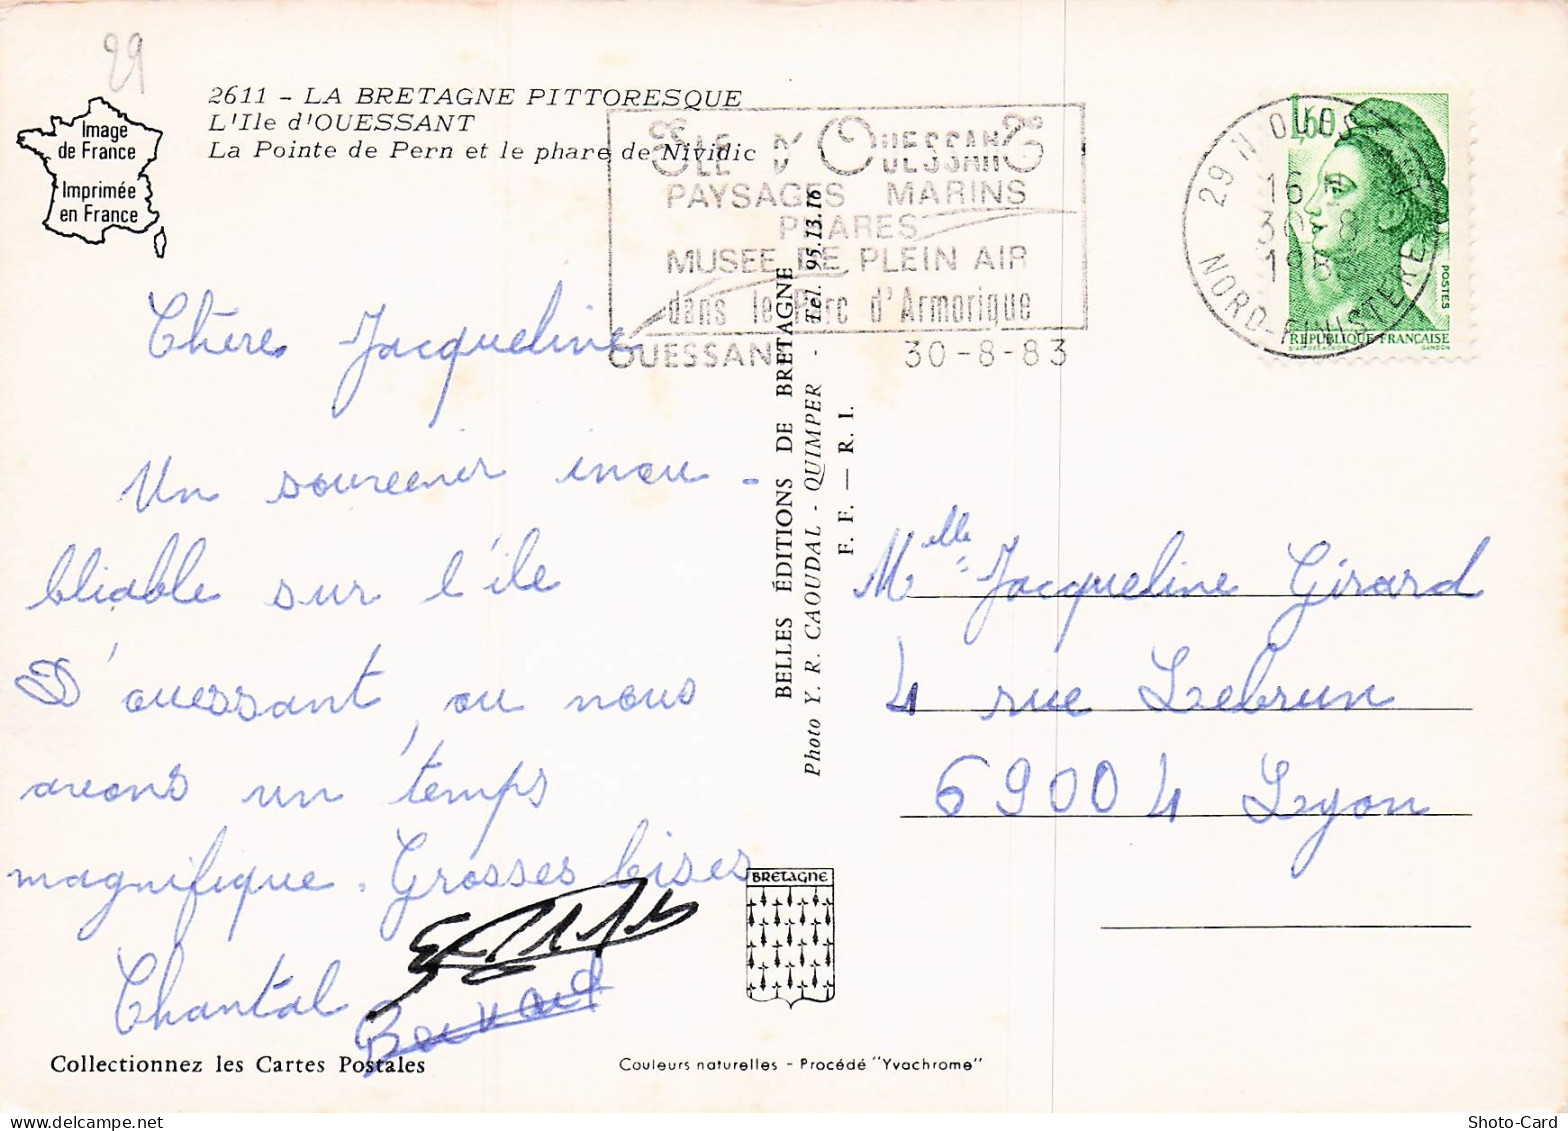 29
2611 - LA BRETAGNE PITTORESQUE
L'Ile d'OUESSANT
La Pointe de Pern et le phare de Nividic
Image
de France
Imprimée
en France
ILE D'OUESSANT
PAYSAGES MARINS
PHARES
MUSEE DE PLEIN AIR
dans le Parc d'Armorique
OUESSANT 30-8-83
29 N OUESSANT
16 H
30-8
1983
NORD-FINISTERE
1,60
POSTES
REPUBLIQUE FRANÇAISE
D'AP. DELACROIX GANDON
Chère Jacqueline
Un souvenir inou -
bliable sur l'île
D'ouessant, ou nous
avons un temps
magnifique. Grosses bises
Chantal
BELLES ÉDITIONS DE BRETAGNE
Photo Y. R. CAOUDAL - QUIMPER - Tél. 95.13.16
F. F. — R. I.
Melle Jacqueline Girard
4 rue Lebrun
69004 Lyon
BRETAGNE
Collectionnez les Cartes Postales
Couleurs naturelles - Procédé "Yvachrome"
Shoto-Card